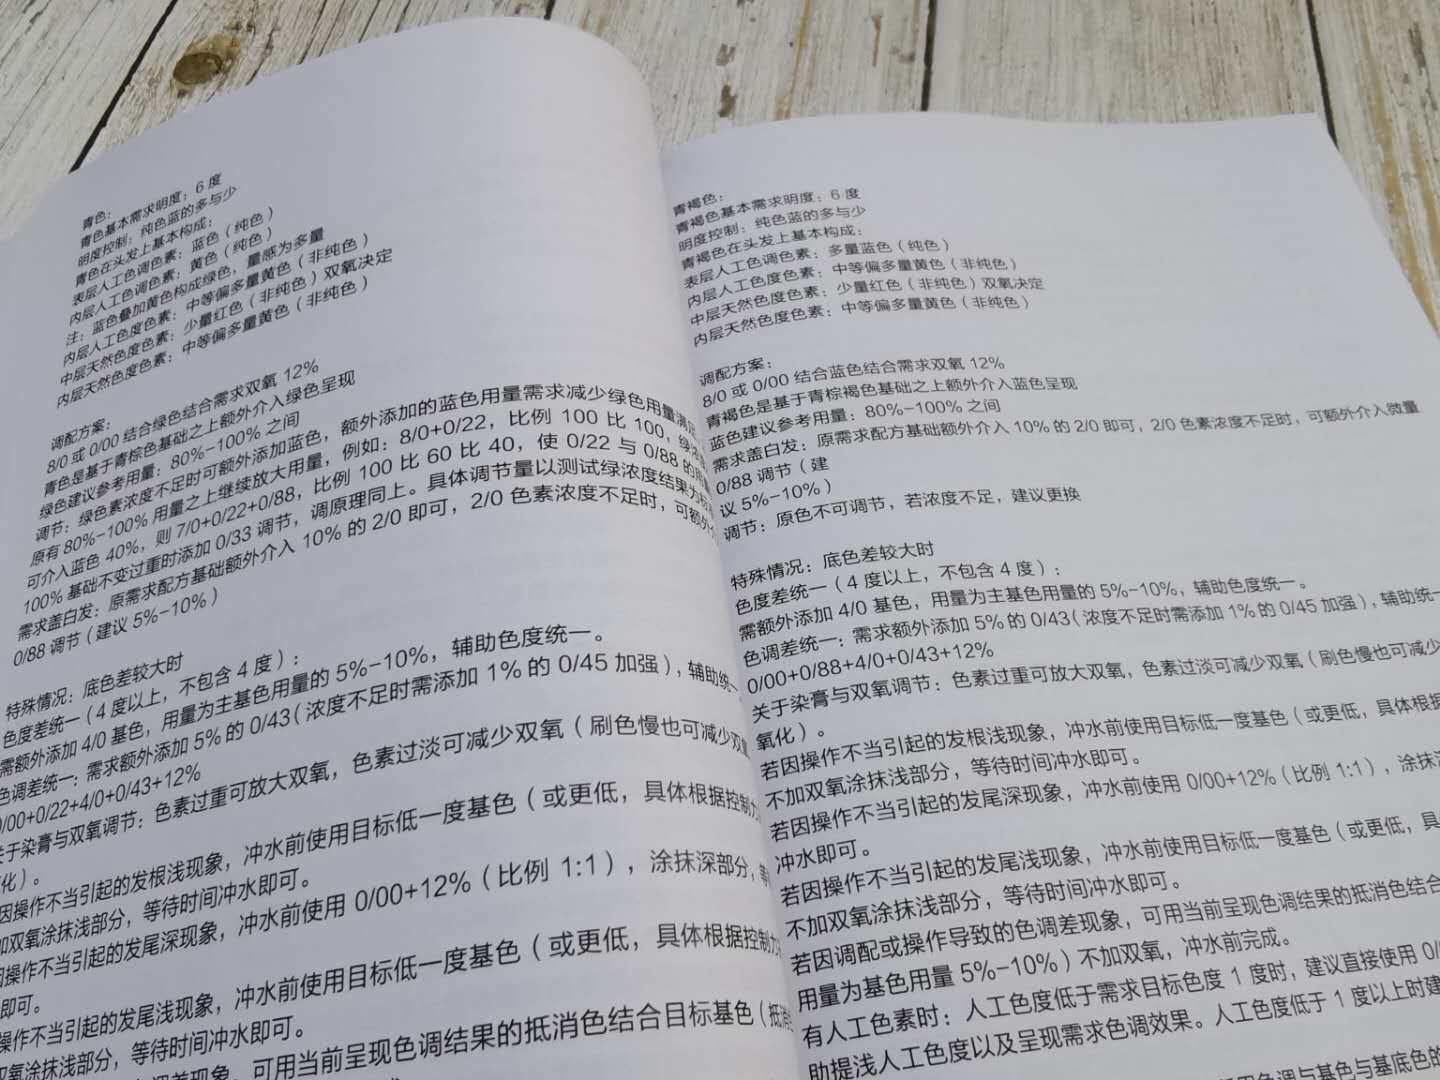 青色：
青色基本需求明度：6 度
明度控制：纯色蓝的多与少
青色在头发上基本构成：
表层人工色调色素：蓝色（纯色）
内层人工色调色素：黄色（纯色）
注：蓝色叠加黄色构成绿色，量感为多量
内层人工色度色素：中等偏多量黄色（非纯色）
中层天然色度色素：少量红色（非纯色）双氧决定
内层天然色度色素：中等偏多量黄色（非纯色）
调配方案：
8/0 或 0/00 结合绿色结合需求双氧 12%
青色是基于青棕色基础之上额外介入绿色呈现
绿色建议参考用量：80%-100% 之间
调节：绿色素浓度不足时可额外添加蓝色，额外添加的蓝色用量需求减少绿色用量满足
原有 80%-100% 用量之上继续放大用量，例如：8/0+0/22，比例 100 比 100，绿浓度
可介入蓝色 40%，则 7/0+0/22+0/88，比例 100 比 60 比 40，使 0/22 与 0/88 的用量
100% 基础不变过重时添加 0/33 调节，调原理同上。具体调节量以测试绿浓度结果为标
需求盖白发：原需求配方基础额外介入 10% 的 2/0 即可，2/0 色素浓度不足时，可额外
0/88 调节（建议 5%-10%）
特殊情况：底色差较大时
色度差统一（4 度以上，不包含 4 度）：
需额外添加 4/0 基色，用量为主基色用量的 5%-10%，辅助色度统一。
色调差统一：需求额外添加 5% 的 0/43（浓度不足时需添加 1% 的 0/45 加强），辅助统一
0/00+0/22+4/0+0/43+12%
关于染膏与双氧调节：色素过重可放大双氧，色素过淡可减少双氧（刷色慢也可减少双氧
化）。
因操作不当引起的发根浅现象，冲水前使用目标低一度基色（或更低，具体根据控制力
加双氧涂抹浅部分，等待时间冲水即可。
因操作不当引起的发尾深现象，冲水前使用 0/00+12%（比例 1:1），涂抹深部分，等
即可。
操作不当引起的发尾浅现象，冲水前使用目标低一度基色（或更低，具体根据控制力
双氧涂抹浅部分，等待时间冲水即可。
可用当前呈现色调结果的抵消色结合目标基色（抵消
青褐色：
青褐色基本需求明度：6 度
明度控制：纯色蓝的多与少
青褐色在头发上基本构成：
表层人工色调色素：多量蓝色（纯色）
内层人工色度色素：中等偏多量黄色（非纯色）
中层天然色度色素：少量红色（非纯色）双氧决定
内层天然色度色素：中等偏多量黄色（非纯色）
调配方案：
8/0 或 0/00 结合蓝色结合需求双氧 12%
青褐色是基于青棕褐色基础之上额外介入蓝色呈现
蓝色建议参考用量：80%-100% 之间
需求盖白发：原需求配方基础额外介入 10% 的 2/0 即可，2/0 色素浓度不足时，可额外介入微量
0/88 调节（建
议 5%-10%）
调节：原色不可调节，若浓度不足，建议更换
特殊情况：底色差较大时
色度差统一（4 度以上，不包含 4 度）：
需额外添加 4/0 基色，用量为主基色用量的 5%-10%，辅助色度统一。
色调差统一：需求额外添加 5% 的 0/43（浓度不足时需添加 1% 的 0/45 加强），辅助统一
0/00+0/88+4/0+0/43+12%
关于染膏与双氧调节：色素过重可放大双氧，色素过淡可减少双氧（刷色慢也可减少
氧化）。
若因操作不当引起的发根浅现象，冲水前使用目标低一度基色（或更低，具体根据
不加双氧涂抹浅部分，等待时间冲水即可。
若因操作不当引起的发尾深现象，冲水前使用 0/00+12%（比例 1:1），涂抹深
冲水即可。
若因操作不当引起的发尾浅现象，冲水前使用目标低一度基色（或更低，具
不加双氧涂抹浅部分，等待时间冲水即可。
若因调配或操作导致的色调差现象，可用当前呈现色调结果的抵消色结合
用量为基色用量 5%-10%）不加双氧，冲水前完成。
有人工色素时：人工色度低于需求目标色度 1 度时，建议直接使用 0/
助提浅人工色度以及呈现需求色调效果。人工色度低于 1 度以上时建
用色调与基色与基底色的